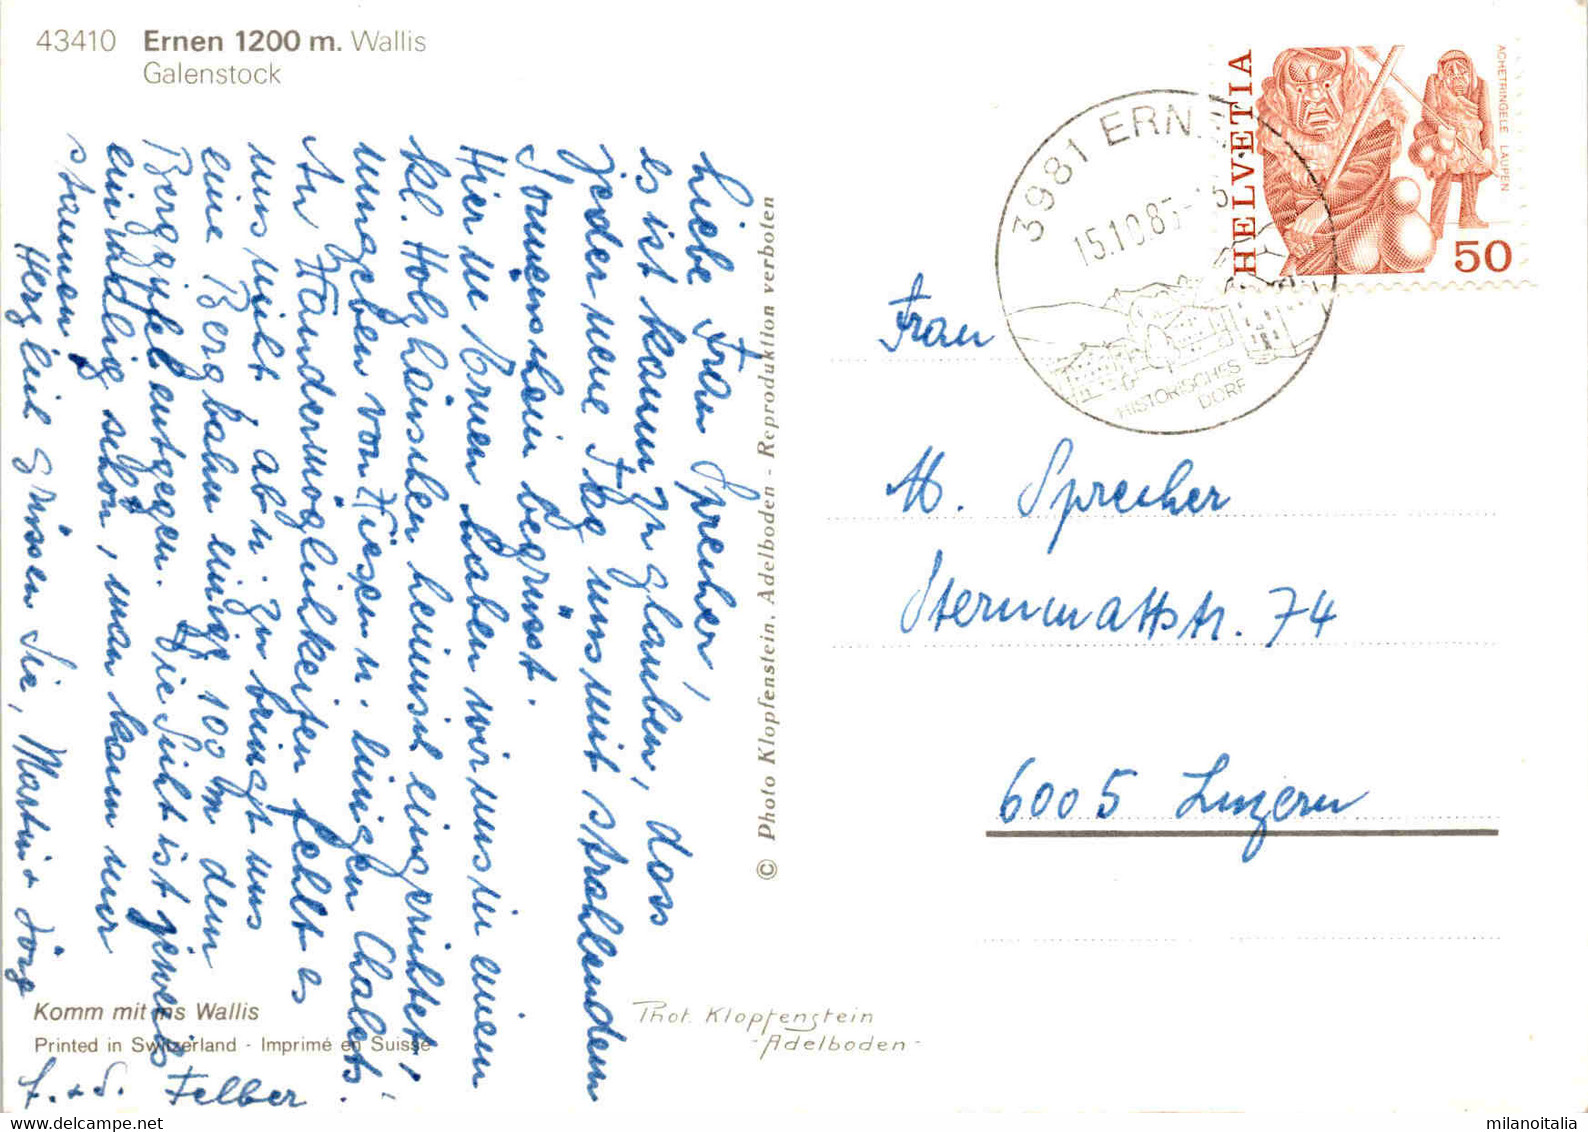 43410 Ernen 1200 m. Wallis
Galenstock
Liebe Frau Sprecher,
es ist kaum zu glauben, dass
jeder neue Tag uns mit strahlendem
Sonnenschein begrüsst.
Hier in Ernen haben wir uns in einem
kl. Holzhäuschen heimisch eingerichtet,
umgeben von Wiesen u. einigen Chalets.
An Wandermöglichkeiten fehlt es
uns nicht, ab u. zu bringt uns
eine Bergbahn einige 100 m den
Berggipfel entgegen. Die Sicht ist jeweils
einmalig schön, man kann nur
staunen.
Herzlich grüssen Sie, Martin + Jörg
+ S. Felber
© Photo Klopfenstein, Adelboden - Reproduktion verboten
Komm mit ins Wallis
Printed in Switzerland - Imprimé en Suisse
Phot. Klopfenstein
- Adelboden -
3981 ERN
15.10.85
HISTORISCHES
DORF
HELVETIA
ACHETRINGELE LAUPEN
50
Frau
M. Sprecher
Sternmattstr. 74
6005 Luzern
milanoitalia